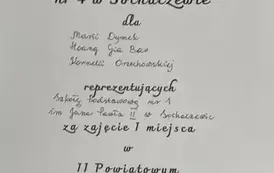 nr 4 w Sochaczewie
dla
Marii Dymek
Hoang Gia Bao
Kornelii Orzechowskiej
reprezentujących
Szkołę Podstawową nr 1
im. Jana Pawła II w Sochaczewie
za zajęcie I miejsca
w
II Powiatowym